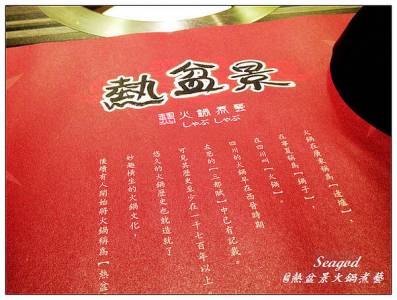 熱盆景
火鍋煮藝
しゃぶしゃぶ
火鍋在廣東稱為【邊爐】，
在寧夏稱為【鍋子】，
在四川叫【火鍋】。
四川的火鍋早在西晉時期
左思的【三都賦】中已有記載。
可見其歷史至少在一千七百年以上
悠久的火鍋歷史也就造就了
妙趣橫生的火鍋文化，
後續有人開始將火鍋稱為【熱盆
Seagod
熱盆景火鍋煮藝